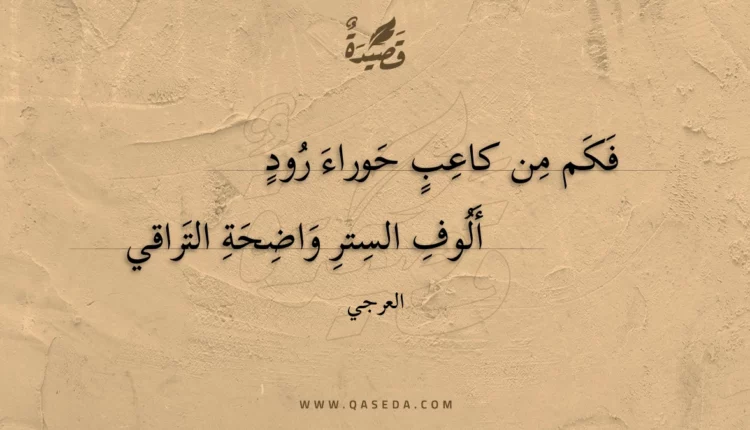 قَصِيْدَةٌ
فَكَم مِن كاعِبٍ حَوراءَ رُودٍ
أَلُوفِ السِترِ وَاضِحَةِ التَراقي
العرجي
WWW.QASEDA.COM